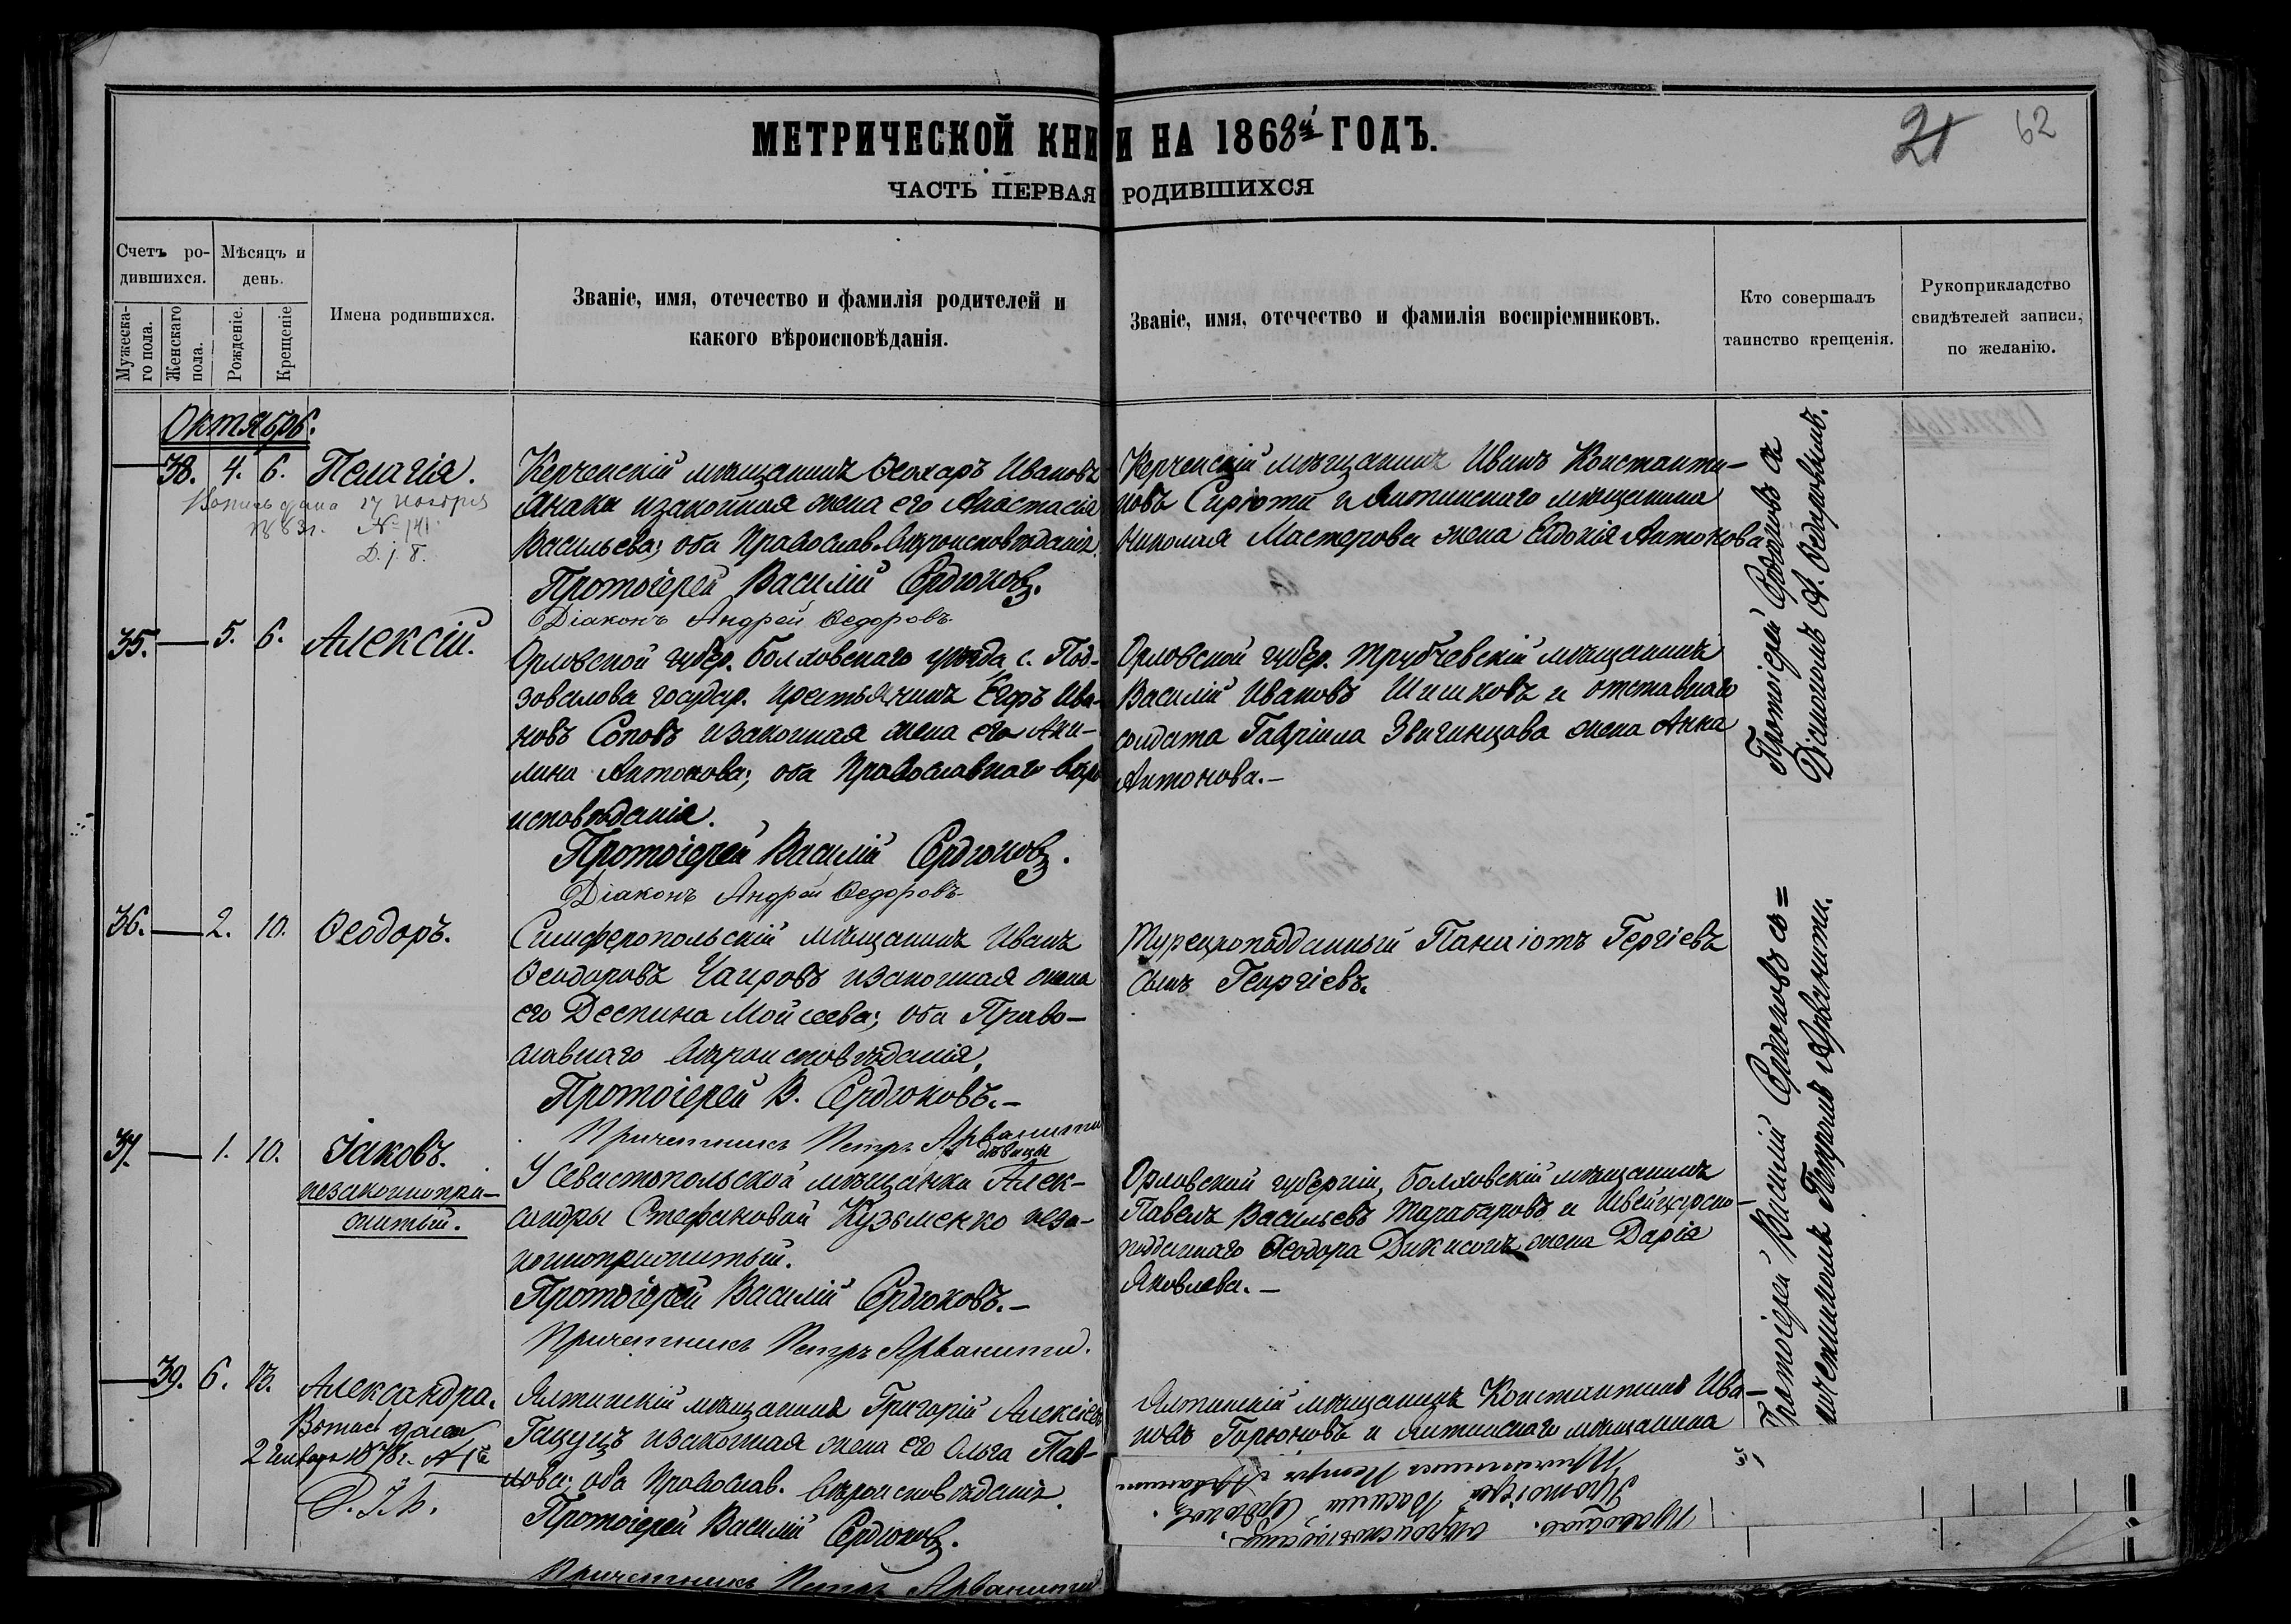 МЕТРИЧЕСКОЙ КНИ И НА 1868й ГОДЪ.
21 62
ЧАСТЬ ПЕРВАЯ РОДИВШИХСЯ
Счетъ ро-
дившихся.
Мужеска-
го пола.
Женскаго
пола.
Мѣсяцъ и
день.
Рожденіе.
Крещеніе
Имена родившихся.
Званіе, имя, отечество и фамилія родителей и
какого вѣроисповѣданія.
Званіе, имя, отечество и фамилія воспріемниковъ.
Кто совершалъ
таинство крещенія.
Рукоприкладство
свидѣтелей записи,
по желанію.
Октябрь.
38. 4. 6. Пелагія.
Копія дана 17 ноября
1883г. № 141
Керченскій мѣщанинъ Ѳеохаръ Ивановъ
и законная жена его Анастасія
Васильева; оба Православ. вѣроисповѣданія.
Протоіерей Василій Сердюковъ.
Діаконъ Андрей Ѳедоровъ.
Керченскій мѣщанинъ Иванъ Константи-
новъ и Ялтинскаго мѣщанина
Николая Мастерова жена Евдокія Антонова
Протоіерей Сердюковъ съ
Діакономъ А. Ѳедоровымъ.
35. 5. 6. Алексій.
Орловской губер. Болховскаго уѣзда с. Под-
зовалова государ. крестьянинъ Егоръ Ива-
новъ Соповъ и законная жена его Аки-
лина Антонова; оба Православнаго вѣро
исповѣданія.
Протоіерей Василій Сердюковъ.
Діаконъ Андрей Ѳедоровъ.
Орловской губер. Трубчевскій мѣщанинъ
Василій Ивановъ Шишковъ и отставнаго
солдата Гавріила Звягинцова жена Анна
Антонова.-
36. 2. 10. Ѳеодоръ.
Симферопольскій мѣщанинъ Иванъ
Ѳеодоровъ Чаировъ и законная жена
его Деспина Мойсеева; оба Право-
славнаго вѣроисповѣданія.
Протоіерей В. Сердюковъ.-
Причетникъ Петръ Арванити
Турецкоподданный Панаіотъ Гергіевъ
сынъ Георгіевъ.
Протоіерей Василій Сердюковъ съ=
причетникомъ Петромъ Арванити.
37. 1. 10. Іаковъ.
незаконнопри-
житый.
дѣвицы
У Севастопольской мѣщанки Алек-
сандры Стефановой Кузьменко неза-
конноприжитый.
Протоіерей Василій Сердюковъ.-
Причетникъ Петръ Арванити.
Орловской губерніи, Болховскій мѣщанинъ
Павелъ Васильевъ Тарабаровъ и Швейцарско-
подданнаго Ѳеодора жена Дарія
Яковлева.-
39. 6. 13. Александра.
дана
2 Января 1878г. №
Ялтинскій мѣщанинъ Григорій Алексіевъ
Гацуцъ и законная жена его Ольга Пав-
лова; оба Православ. вѣроисповѣданія.
Протоіерей Василій Сердюковъ.
Причетникъ Петръ Арванити
Ялтинскій мѣщанинъ Константинъ Ива-
новъ Горюновъ и Ялтинскаго мѣщанина
Причетникъ Петръ Арванити
Протоіерей Василій Сердюковъ.
православ. вѣроисповѣданія.